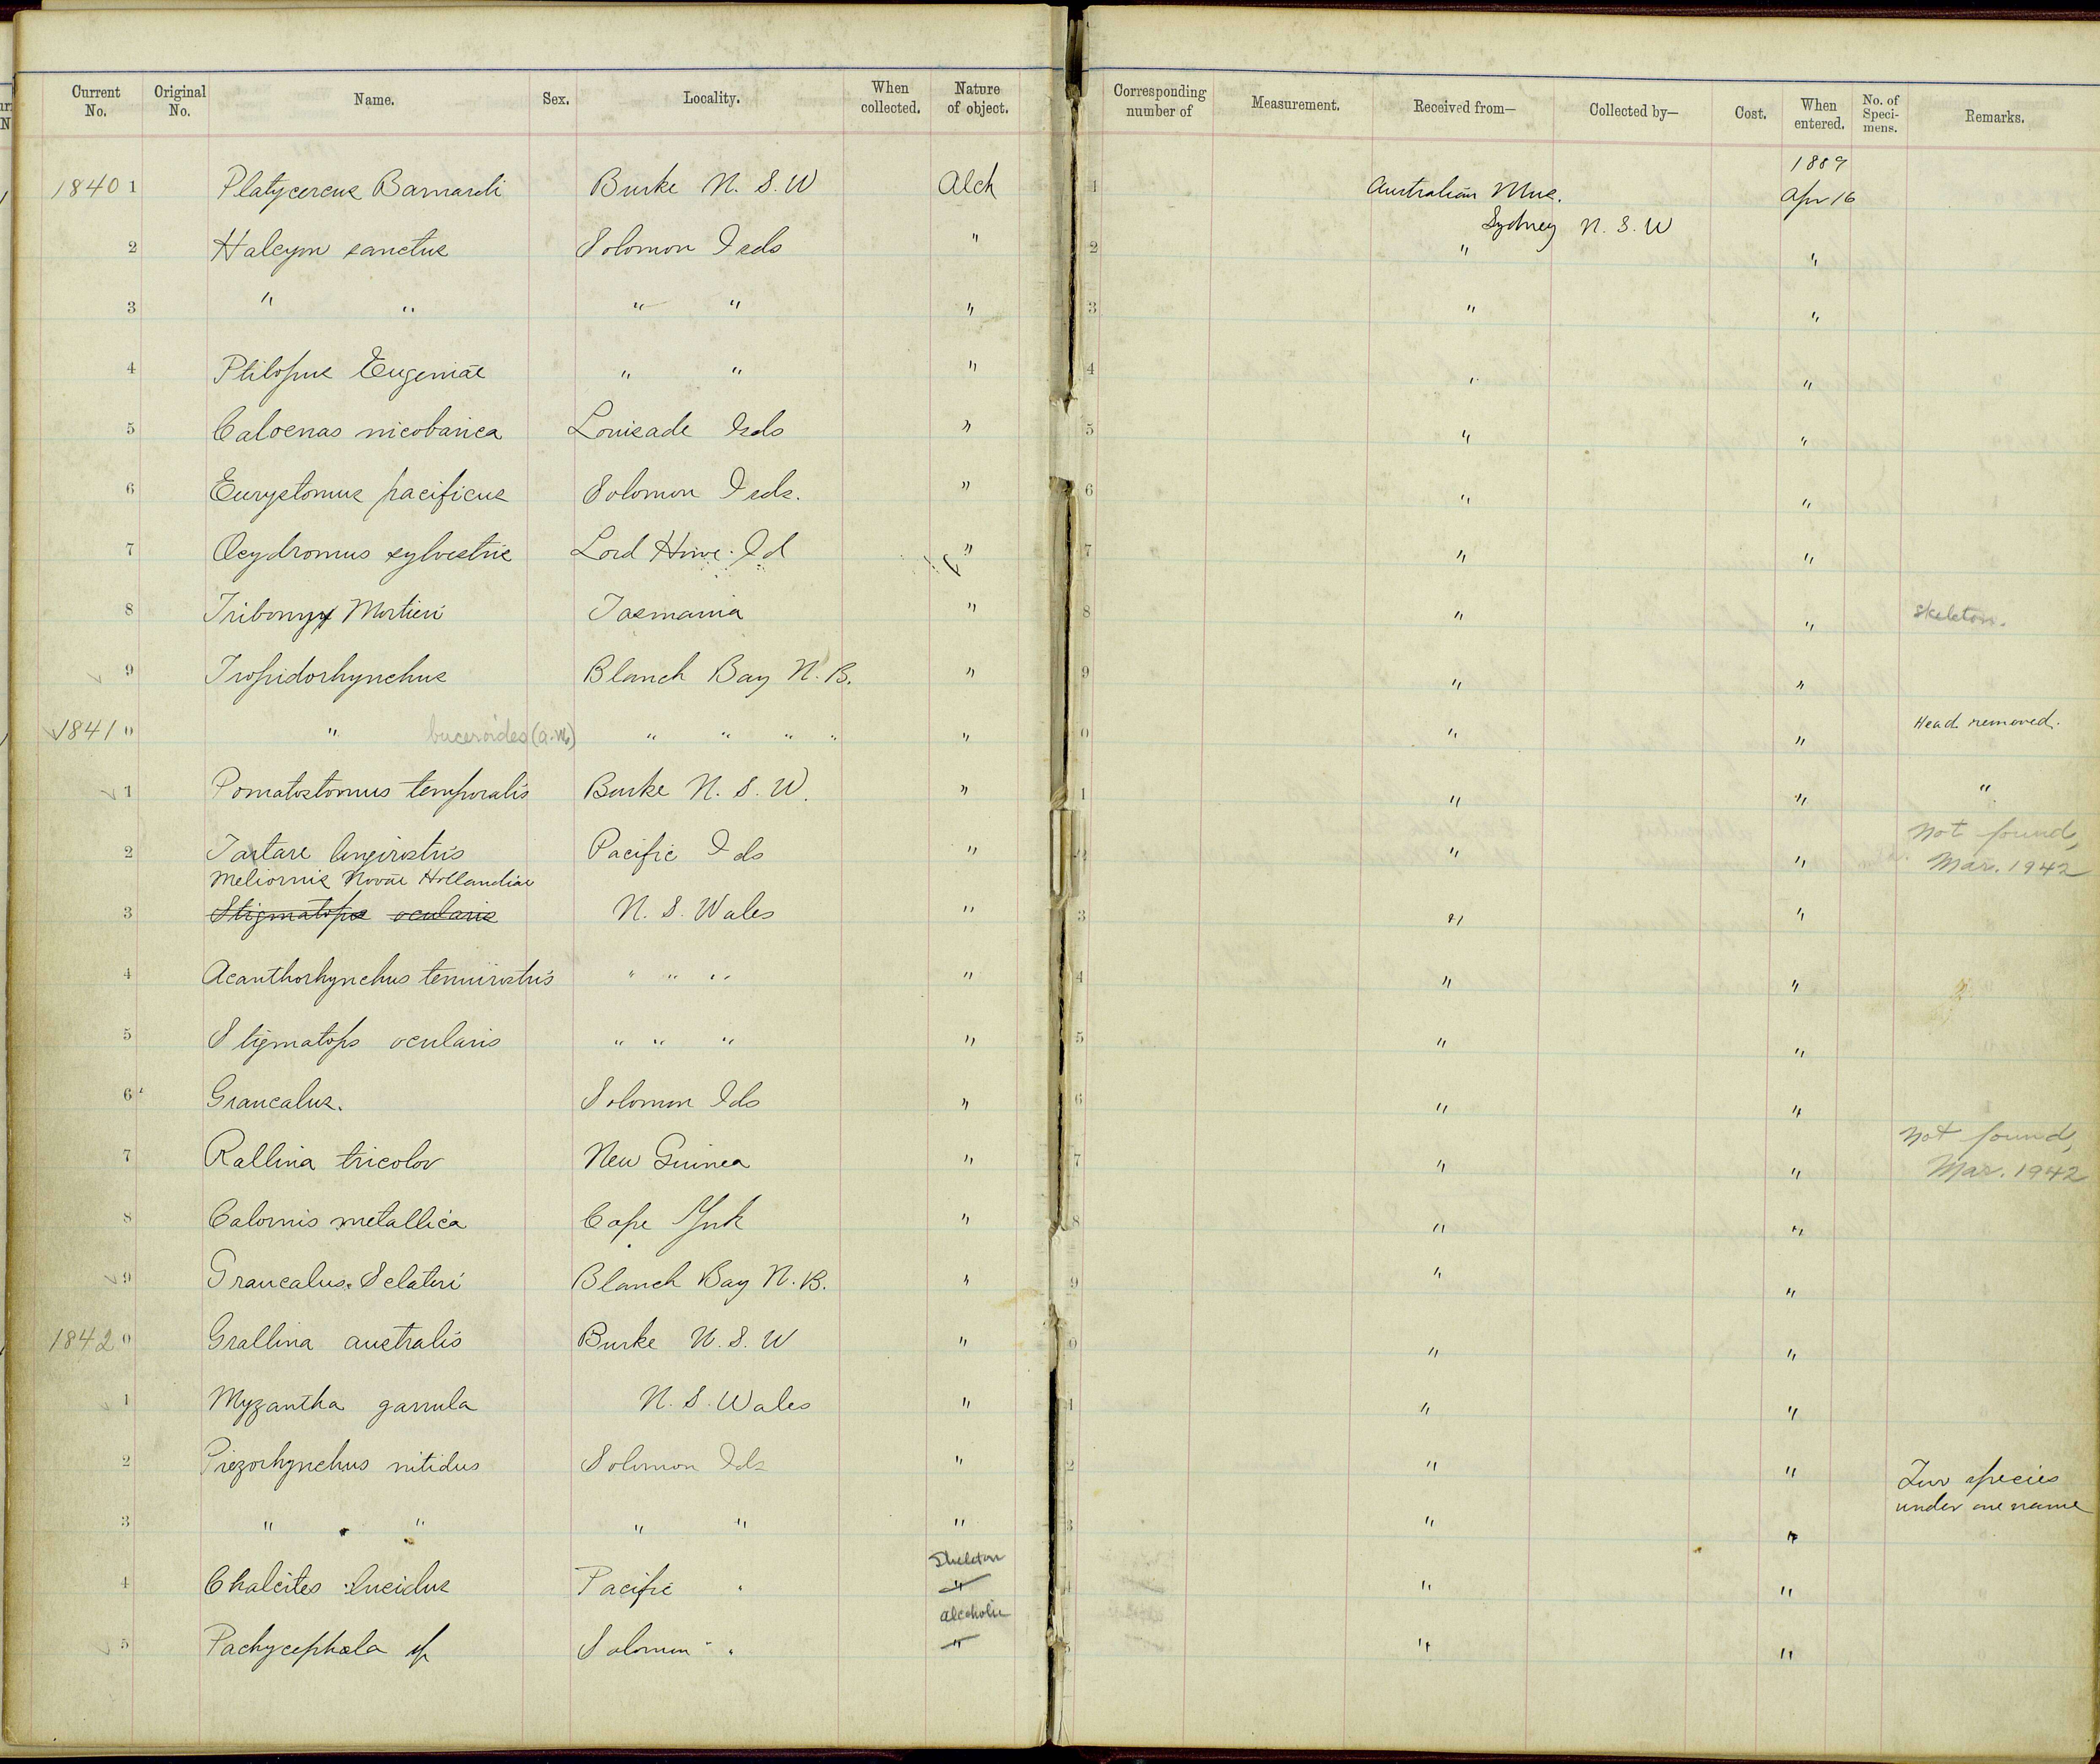 Current No. Original No. Name. Sex. Locality. When collected. Nature of object. Corresponding number of Measurement. Received from— Collected by— Cost. When entered. No. of Speci-mens. Remarks.
1889
18401 Platycercus Barnardi Burke N. S. W Alch 1 Australian Mus. Apr 16
Sydney N. S. W
2 Halcyon sanctus Solomon Isds " 2 " "
3 " " " " " 3 " "
4 Ptilopus Eugeniae " " " 4 " "
5 Caloenas nicobarica Louisade Isds " 5 " "
6 Eurystomus pacificus Solomon Isds. " 6 " "
7 Ocydromus sylvestris Lord Howe Id " 7 " "
8 Tribonyx Mortieri Tasmania " 8 " " skeleton.
9 Tropidorhynchus Blanch Bay N. B. " 9 " "
18410 " buceroides (a.m.) " " " " " 0 " " Head removed.
1 Pomatostomus temporalis Burke N. S. W. " 1 " " "
2 Tartare longirostris Pacific Ids " 2 " " Not found, Mar. 1942
Meliornis Novae Hollandiae
3 Stigmatops ocularis N. S. Wales " 3 " "
4 Acanthorhynchus tenuirostris " " " " 4 " "
5 Stigmatops ocularis " " " " 5 " "
6 Graucalus. Solomon Ids " 6 " "
7 Rallina tricolor New Guinea " 7 " " Not found, Mar. 1942
8 Calornis metallica Cape York " 8 " "
9 Graucalus Sclateri Blanch Bay N. B. " 9 " "
18420 Grallina australis Burke N. S. W " 0 " "
1 Myzantha garrula N. S. Wales " 1 " "
2 Piezorhynchus nitidus Solomon Ids " 2 " " Two species
under one name
3 " " " " " 3 " "
Skeleton
4 Chalcites lucidus Pacific " " 4 " "
alcoholic
5 Pachycephala sp Solomon " " " "